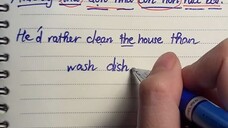 He'd rather clean the house than
wash dish